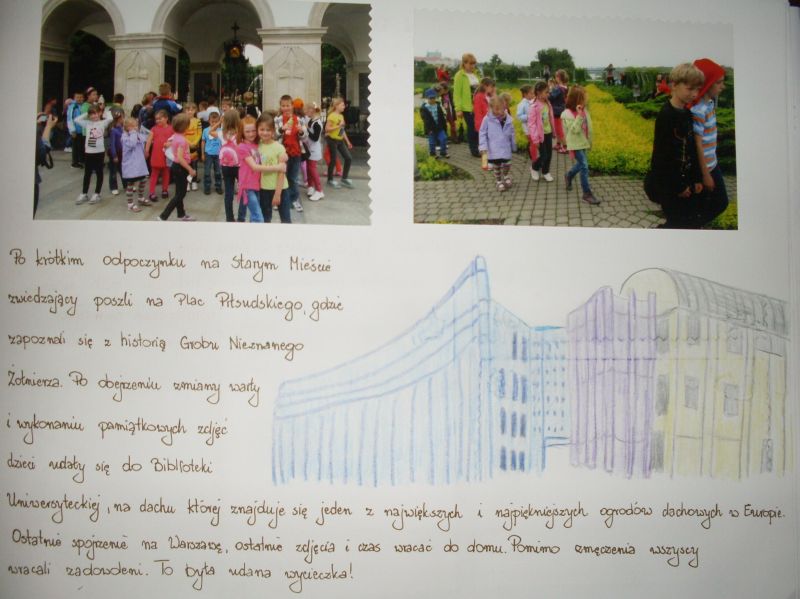 Po krótkim odpoczynku na Starym Mieście
zwiedzający poszli na Plac Piłsudskiego, gdzie
zapoznali się z historią Grobu Nieznanego
Żołnierza. Po obejrzeniu zmiany warty
i wykonaniu pamiątkowych zdjęć
dzieci udały się do Biblioteki
Uniwersyteckiej, na dachu której znajduje się jeden z największych i najpiękniejszych ogrodów dachowych w Europie.
Ostatnie spojrzenie na Warszawę, ostatnie zdjęcia i czas wracać do domu. Pomimo zmęczenia wszyscy
wracali zadowoleni. To była udana wycieczka!